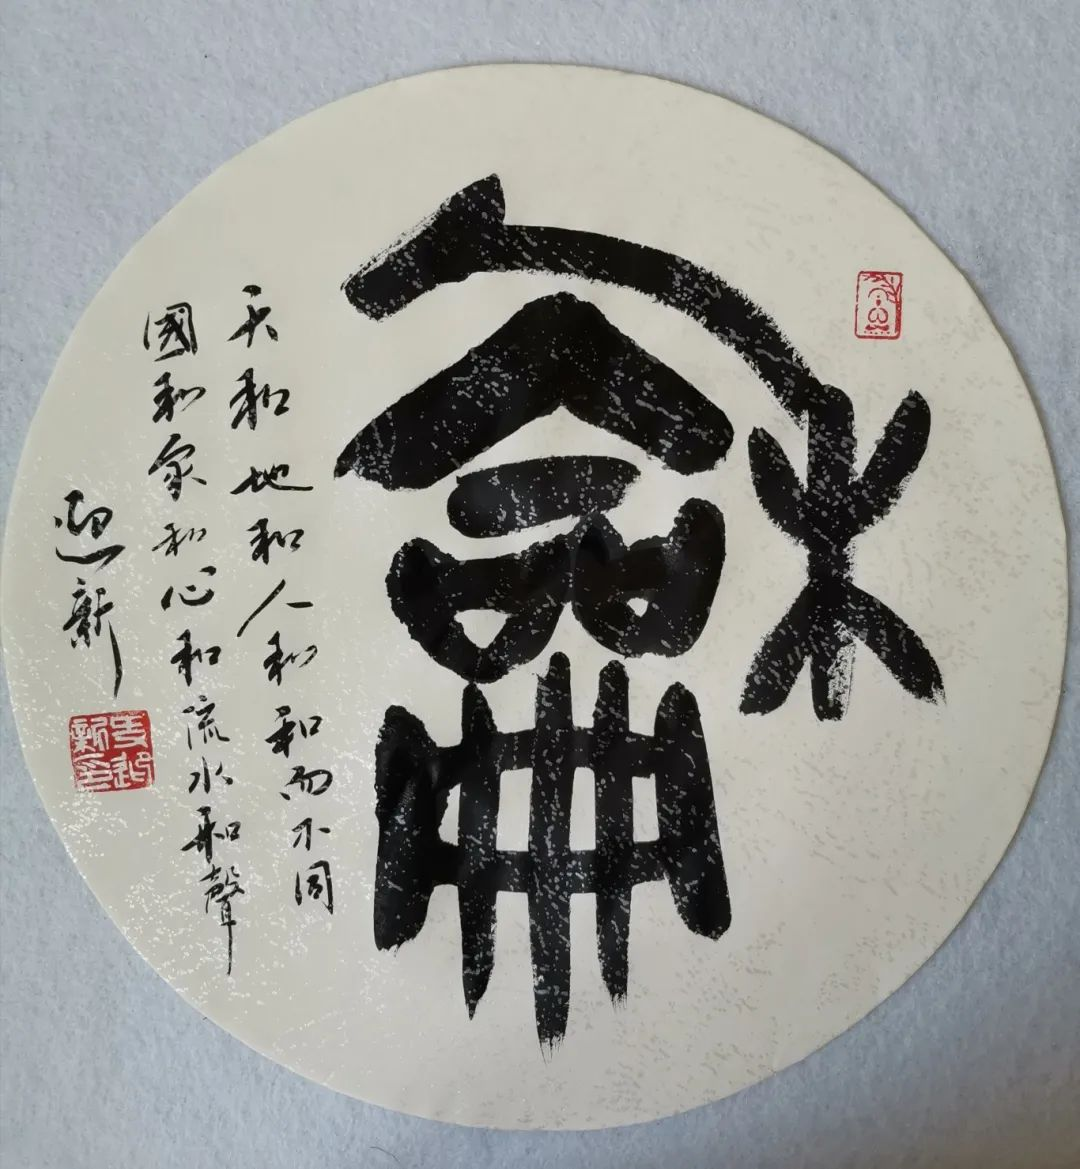 龢
天和地和人和和而不同
國和家和心和流水和聲
迎新